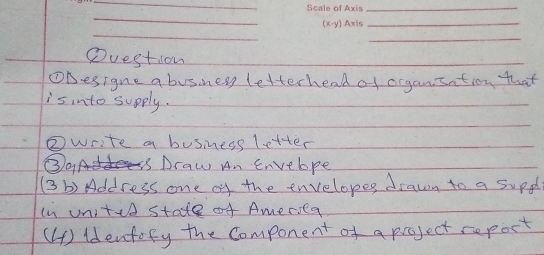 Scale of Axis
(x-y) Axis
Question
① Designe a business letterhead of organisation that
is into supply.
② write a business letter
③a Draw An Envelope
(3b) Address one of the envelopes drawn to a
in united State of America
(4) Identofy the Component of a project report